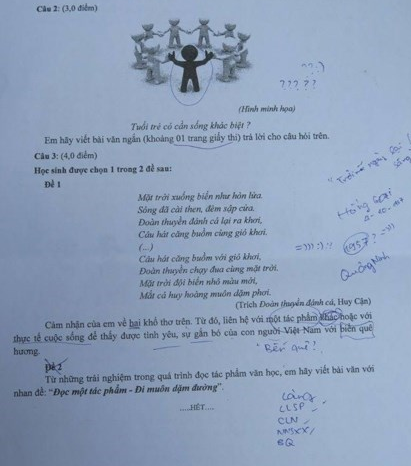 Câu 2: (3,0 điểm)
??:)
? ? ? ?
(Hình minh họa)
Tuổi trẻ có cần sống khác biệt ?
Em hãy viết bài văn ngắn (khoảng 01 trang giấy thi) trả lời cho câu hỏi trên.
Câu 3: (4,0 điểm)
Học sinh được chọn 1 trong 2 đề sau:
Đề 1
Mặt trời xuống biển như hòn lửa.
Sóng đã cài then, đêm sập cửa.
Đoàn thuyền đánh cá lại ra khơi,
Câu hát căng buồm cùng gió khơi.
(...)
Câu hát căng buồm với gió khơi,
Đoàn thuyền chạy đua cùng mặt trời.
Mặt trời đội biển nhô màu mới,
Mắt cá huy hoàng muôn dặm phơi.
1958
Quảng Ninh
(Trích Đoàn thuyền đánh cá, Huy Cận)
Cảm nhận của em về hai khổ thơ trên. Từ đó, liên hệ với một tác phẩm khác hoặc với
thực tế cuộc sống để thấy được tình yêu, sự gắn bó của con người Việt Nam với biển quê
hương.
"Bến quê"
Đề 2
Từ những trải nghiệm trong quá trình đọc tác phẩm văn học, em hãy viết bài văn với
nhan đề: “Đọc một tác phẩm - Đi muôn dặm đường”.
....HẾT....
Làng
LLSP
CLN
BQ